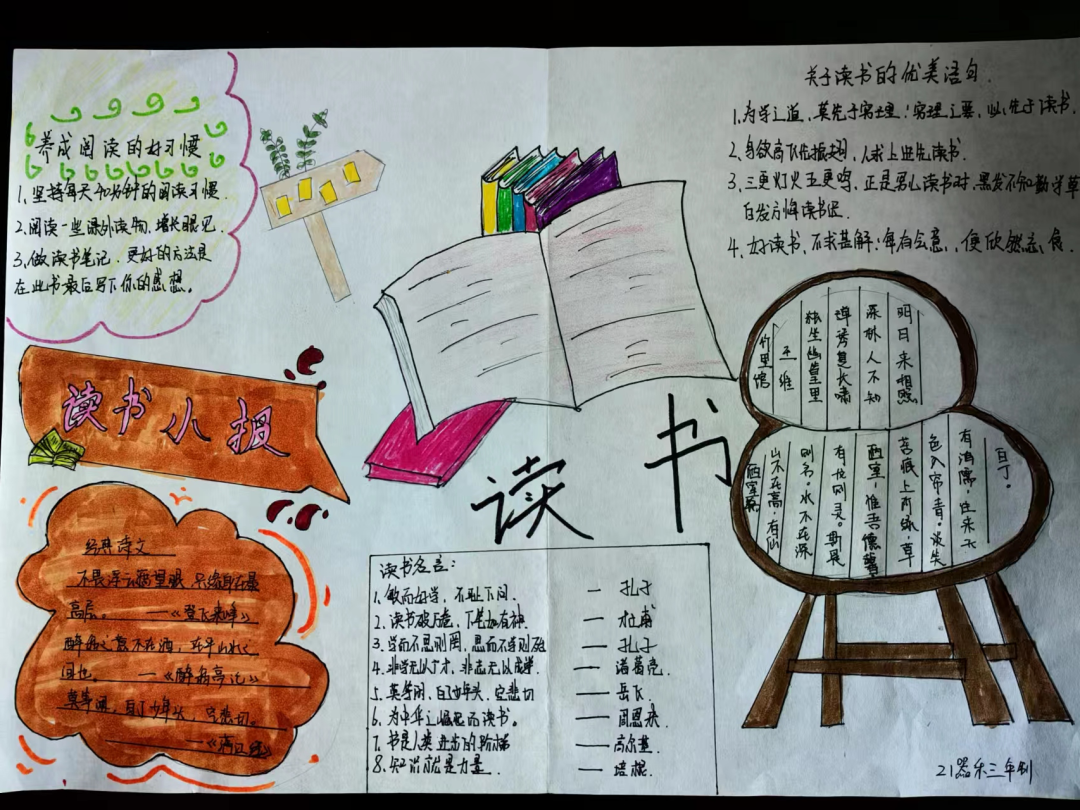 养成阅读的好习惯
1、坚持每天40分钟的阅读习惯.
2.阅读一些课外读物,增长眼见.
3、做读书笔记.更好的方法是
在此书最后写下你的感想。
读书小报
经典诗文
不畏浮云遮望眼,只缘身在最
高层。——《登飞来峰》
醉翁之意不在酒,在乎山水之
间也. ——《醉翁亭记》
莫等闲,白了少年头,空悲切。
——《满江红》
读书
读书名言:
1、敏而好学,不耻下问. — 孔子
2、读书破万卷,下笔如有神. — 杜甫
3、学而不思则罔,思而不学则殆 — 孔子
4、非学无以广才,非志无以成学. — 诸葛亮.
5、莫等闲,白了少年头,空悲切 — 岳飞
6、为中华之崛起而读书。 — 周恩来
7、书是人类进步的阶梯 — 高尔基.
8、知识就是力量. — 培根.
关于读书的优美语句.
1、为学之道,莫先于穷理;穷理之要,必先于读书.
2、身欲高飞先振翅,人求上进先读书.
3、三更灯火五更鸡,正是男儿读书时.黑发不知勤学早
白发方悔读书迟.
4、好读书,不求甚解;每有会意,便欣然忘食.
竹里馆
王维
独坐幽篁里
弹琴复长啸
深林人不知
明月来相照
陋室铭
山不在高,有仙
则名。水不在深
有龙则灵。斯是
陋室,惟吾德馨
苔痕上阶绿,草
色入帘青。谈笑
有鸿儒,往来无
白丁。
21器乐三年制